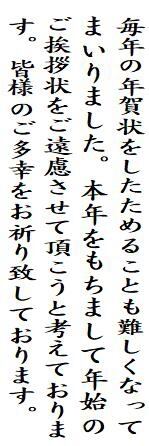 毎年の年賀状をしたためることも難しくなって
まいりました。本年をもちまして年始の
ご挨拶状をご遠慮させて頂こうと考えておりま
す。皆様のご多幸をお祈り致しております。